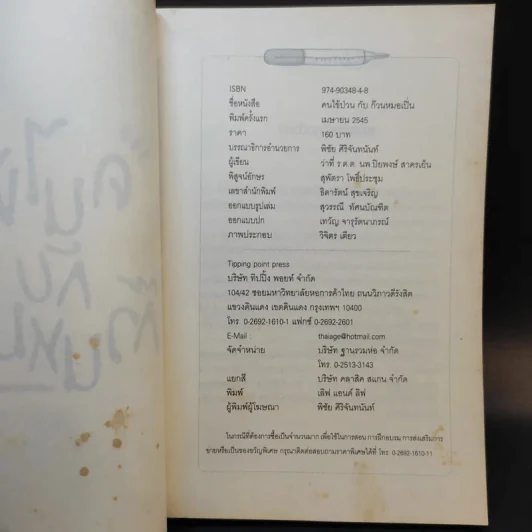 ISBN 974-90348-4-8
ชื่อหนังสือ คนไข้ป่วน กับ ก๊วนหมอเปิ่น
พิมพ์ครั้งแรก เมษายน 2545
ราคา 160 บาท
บรรณาธิการอำนวยการ พิชัย ศิริจันทนันท์
ผู้เขียน ว่าที่ ร.ต.ต. นพ.ปิยพงษ์ สาครเย็น
พิสูจน์อักษร สุพัตรา โพธิ์ประชุม
เลขาสำนักพิมพ์ ธิดารัตน์ สุขเจริญ
ออกแบบรูปเล่ม สุวรรณี ทัศนบัณฑิต
ออกแบบปก เทวัญ จารุรัตนาภรณ์
ภาพประกอบ วิจิตร เดียว
Tipping point press
บริษัท ทิปปิ้ง พอยท์ จำกัด
104/42 ซอยมหาวิทยาลัยหอการค้าไทย ถนนวิภาวดีรังสิต
แขวงดินแดง เขตดินแดง กรุงเทพฯ 10400
โทร. 0-2692-1610-1 แฟกซ์ 0-2692-2601
E-Mail thaiage@hotmail.com
จัดจำหน่าย บริษัท ฐานรวมห่อ จำกัด
โทร. 0-2513-3143
แยกสี บริษัท คลาสิค สแกน จำกัด
พิมพ์ เลิฟ แอนด์ ลิฟ
ผู้พิมพ์ผู้โฆษณา พิชัย ศิริจันทนันท์
ในกรณีที่ต้องการซื้อเป็นจำนวนมาก เพื่อใช้ในการสอน การฝึกอบรม การส่งเสริมการ
ขายหรือเป็นของขวัญพิเศษ กรุณาติดต่อสอบถามราคาพิเศษได้ที่ โทร. 0-2692-1610-11